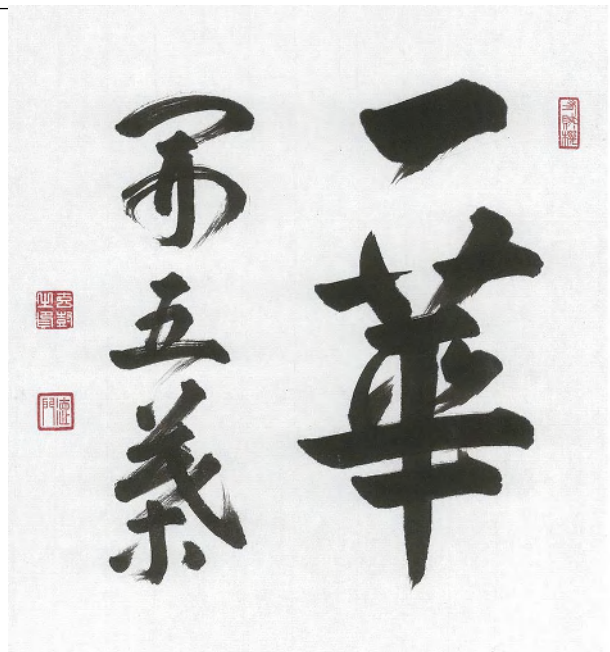 一華
開五葉